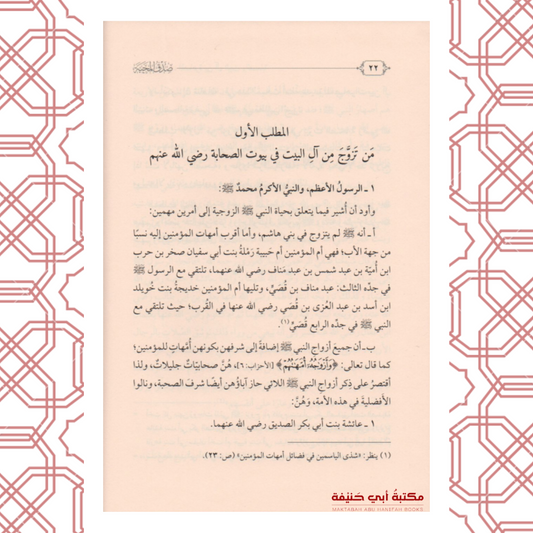 ٢٢
صدق المحبة
المطلب الأول
مَن تَزَوَّجَ مِن آلِ البيت في بيوت الصحابة رضي الله عنهم
١ ـ الرسولُ الأعظم، والنبيُّ الأكرمُ محمدٌ ﷺ:
وأود أن أُشير فيما يتعلق بحياة النبي ﷺ الزوجية إلى أمرين مهمين:
أ ـ أنه ﷺ لم يتزوج في بني هاشم، وأما أقرب أمهات المؤمنين إليه نسبًا
من جهة الأب؛ فهي أم المؤمنين أم حَبيبة رَمْلةُ بنت أبي سفيان صخر بن حرب
ابن أُميّة بن عبد شمس بن عبد مَناف رضي الله عنهما، تلتقي مع الرسول ﷺ
في جدّه الثالث: عبد مناف بن قُصَيٍّ، وتليها أم المؤمنين خديجةُ بنت خُويلد
ابن أسد بن عبد العُزى بن قُصَي رضي الله عنها في القُرب؛ حيث تلتقي مع
النبي ﷺ في جدّه الرابع قُصَيّ(١).
ب ـ أن جميع أزواج النبي ﷺ إضافةً إلى شرفهن بكونهن أُمّهاتٍ للمؤمنين؛
كما قال تعالى: ﴿وَأَزْوَٰجُهُۥٓ أُمَّهَٰتُهُمْ﴾ [الأحزاب: ٦]، هُنَّ صحابيّاتٌ جليلاتٌ، ولذا
أقتصرُ على ذِكر أزواج النبي ﷺ اللاتي حاز آباؤُهن أيضًا شرفَ الصحبة، ونالوا
الأفضليةَ في هذه الأمة، وهُنَّ:
١ ـ عائشة بنت أبي بكر الصديق رضي الله عنهما.
(١) ينظر: «شذى الياسمين في فضائل أمهات المؤمنين» (ص: ٢٣).
مكتبة أبي حنيفة
MAKTABAH ABU HANIFAH BOOKS